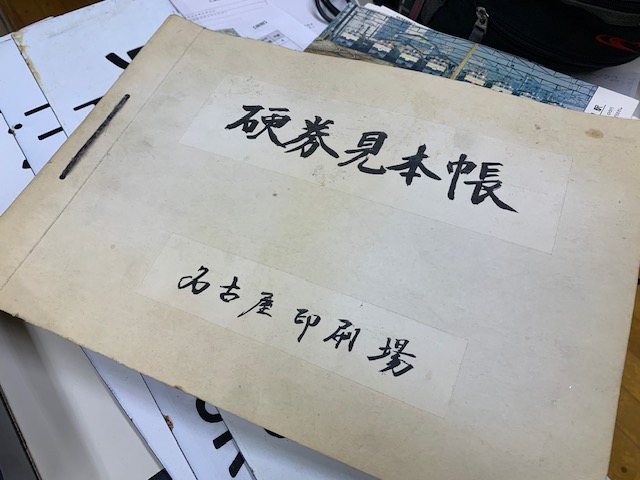 硬券見本帳
名古屋印刷場